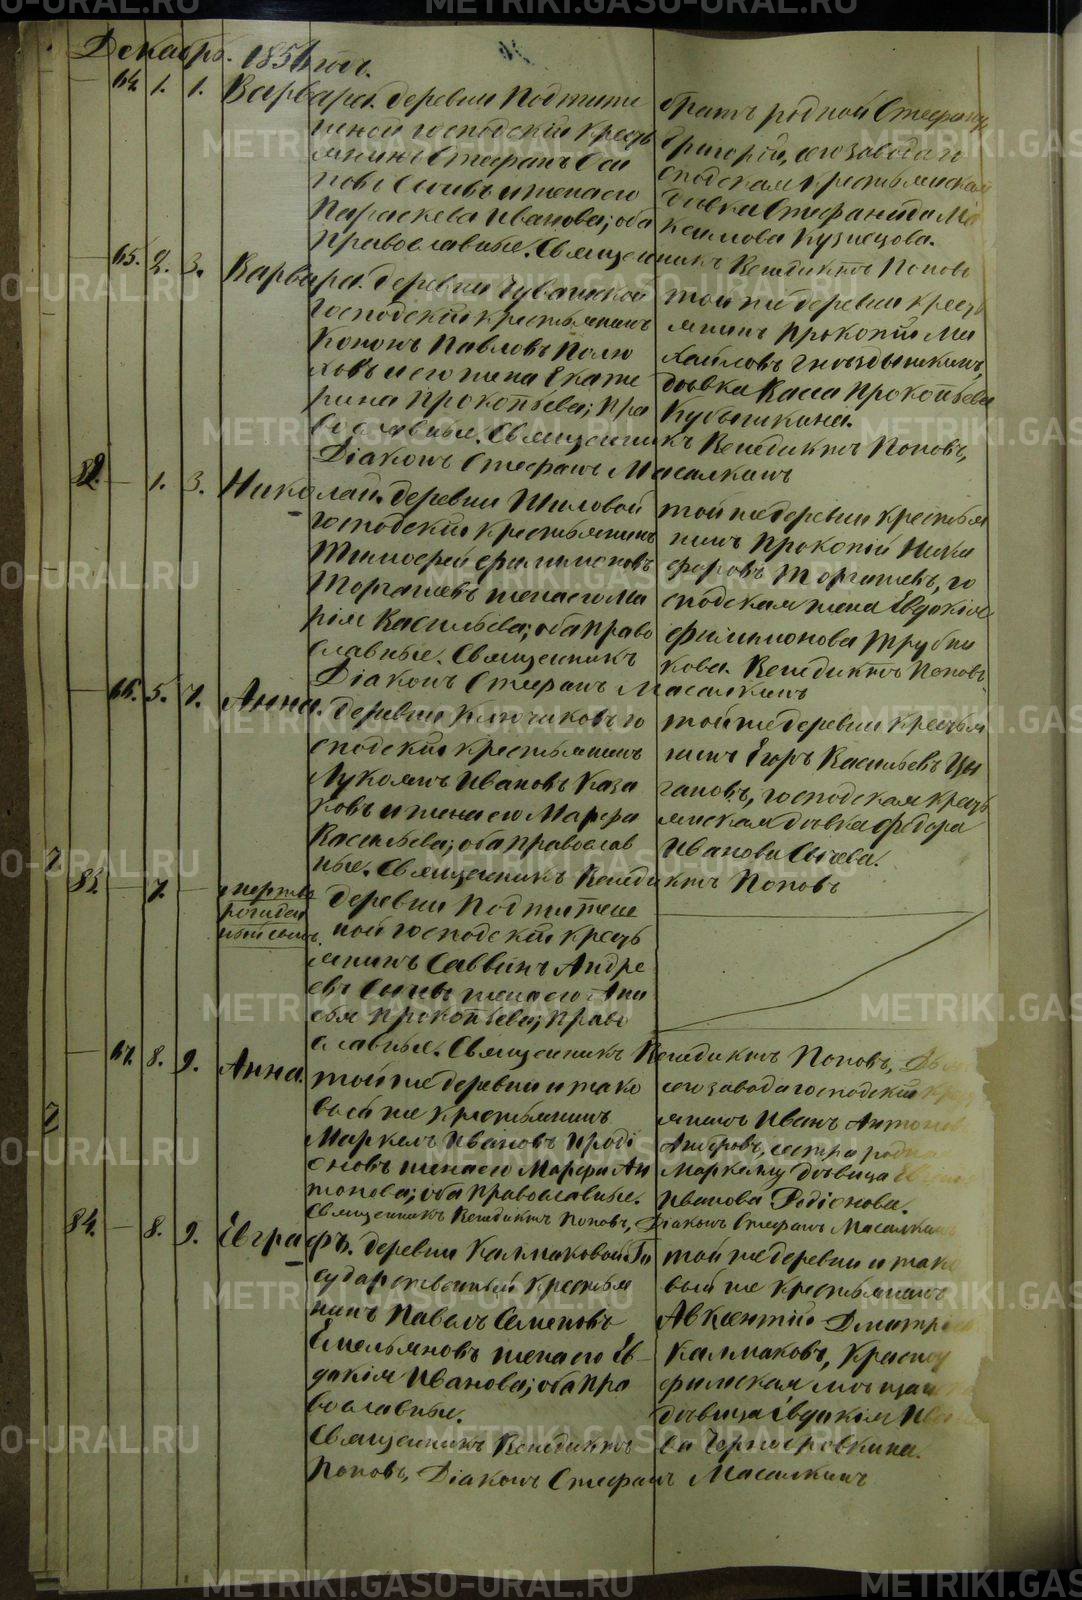 Декабрь. 1851 год.
64. 1. 1. Варвара. деревни Подтипи
шной господскій кресть
янинъ Стефанъ Оси
повъ Сычевъ и жена его
Параскева Иванова; оба
православные. Священникъ Венедиктъ Поповъ
братъ родной Стефану
Григорій, сего завода го
сподская крестьянская
дѣвка Стефанида Ма
ксимова Кузнецова.
65. 2. 3. Варвара. деревни Чувашской
господскій крестьянинъ
Кононъ Павловъ Полю
ховъ и его жена Екате
рина Прокопьева; пра
вославные. Священникъ Венедиктъ Поповъ,
Діаконъ Стефанъ Масалкинъ
той же деревни кресть
янинъ Прокопій Ми
хайловъ Гнѣздышкинъ,
дѣвка Васса Прокопьева
82. 1. 3. Николай. деревни Шиловой
господскій крестьянинъ
Тимофей Филимоновъ
Торгашевъ жена его Ма
рія Васильева; оба право
славные. Священникъ
Діаконъ Стефанъ Масалкинъ
той же деревни крестья
нинъ Прокопій Ники
форовъ Торгашевъ, го
сподская жена Евдокія
Филимонова Трубни
кова. Венедиктъ Поповъ
66. 5. 7. Анна. деревни Ключиковъ го
сподскій крестьянинъ
Лукоянъ Ивановъ Каза
ковъ и жена его Марфа
Васильева; оба православ
ные. Священникъ Венедиктъ Поповъ
той же деревни крестья
нинъ Егоръ Васильевъ Цы
гановъ, господская кресть
янская дѣвка Ѳедора
Иванова Сычева.
83. 7. мертво
рожден
ный сынъ.
деревни Подтипеш
ной господскій кресть
янинъ Саввинъ Андре
евъ Сычевъ жена его Ани
сья Прокопьева; право
славные. Священникъ Венедиктъ Поповъ,
67. 8. 9. Анна. той же деревни и тако
вой же крестьянинъ
Маркелъ Ивановъ Ироді
оновъ жена его Марфа Ан
тонова; оба православные.
Священникъ Венедиктъ Поповъ, Діаконъ Стефанъ Масалкинъ
сего завода господскій
янинъ Иванъ Антоновъ
сестра родная
Маркелу дѣвица
Иванова Родіонова.
84. 8. 9. Евграфъ. деревни Калмаковой Го
сударственный крестья
нинъ Павелъ Семеновъ
Емельяновъ жена его Ев-
докія Иванова; оба пра
вославные.
Священникъ Венедиктъ
Поповъ, Діаконъ Стефанъ Масалкинъ
той же деревни и тако
вый же крестьянинъ
Авксентій Дмитріевъ
Калмаковъ, Красноу
фимская мѣщанская
дѣвица Евдокія Ивано
ва
METRIKI.GASO-URAL.RU